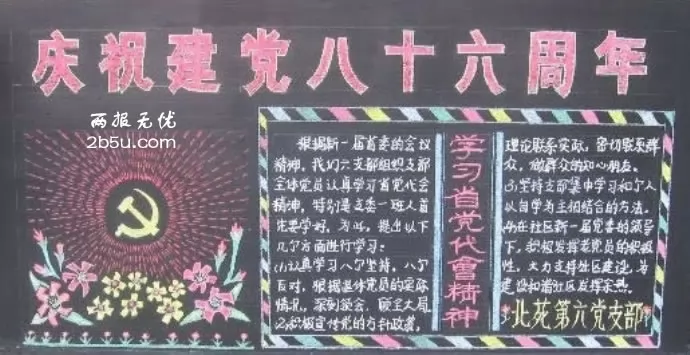 庆祝建党八十六周年
两报无优
2b5u.com
根据新一届省委的会议
精神，我们六支部组织支部
全体党员认真学习省党代会
精神，特别是支委一班人首
先要学好，为此，提出以下
几个方面进行学习：
(1)认真学习八个坚持，八个
反对，根据基体党员的实际
情况，深刻领会，顾全大局
(2)积极宣传党的方针政策，
学习省党代會精神
理论联系实际，密切联系群
众，做群众的知心朋友。
(3)坚持支部集中学习和个人
以自学为主相结合的方法。
(4)在社区新一届党委的领导
下，积极发挥老党员的积极
性，大力支持社区建设，为
建设和谐社区发挥余热。
北苑第六党支部